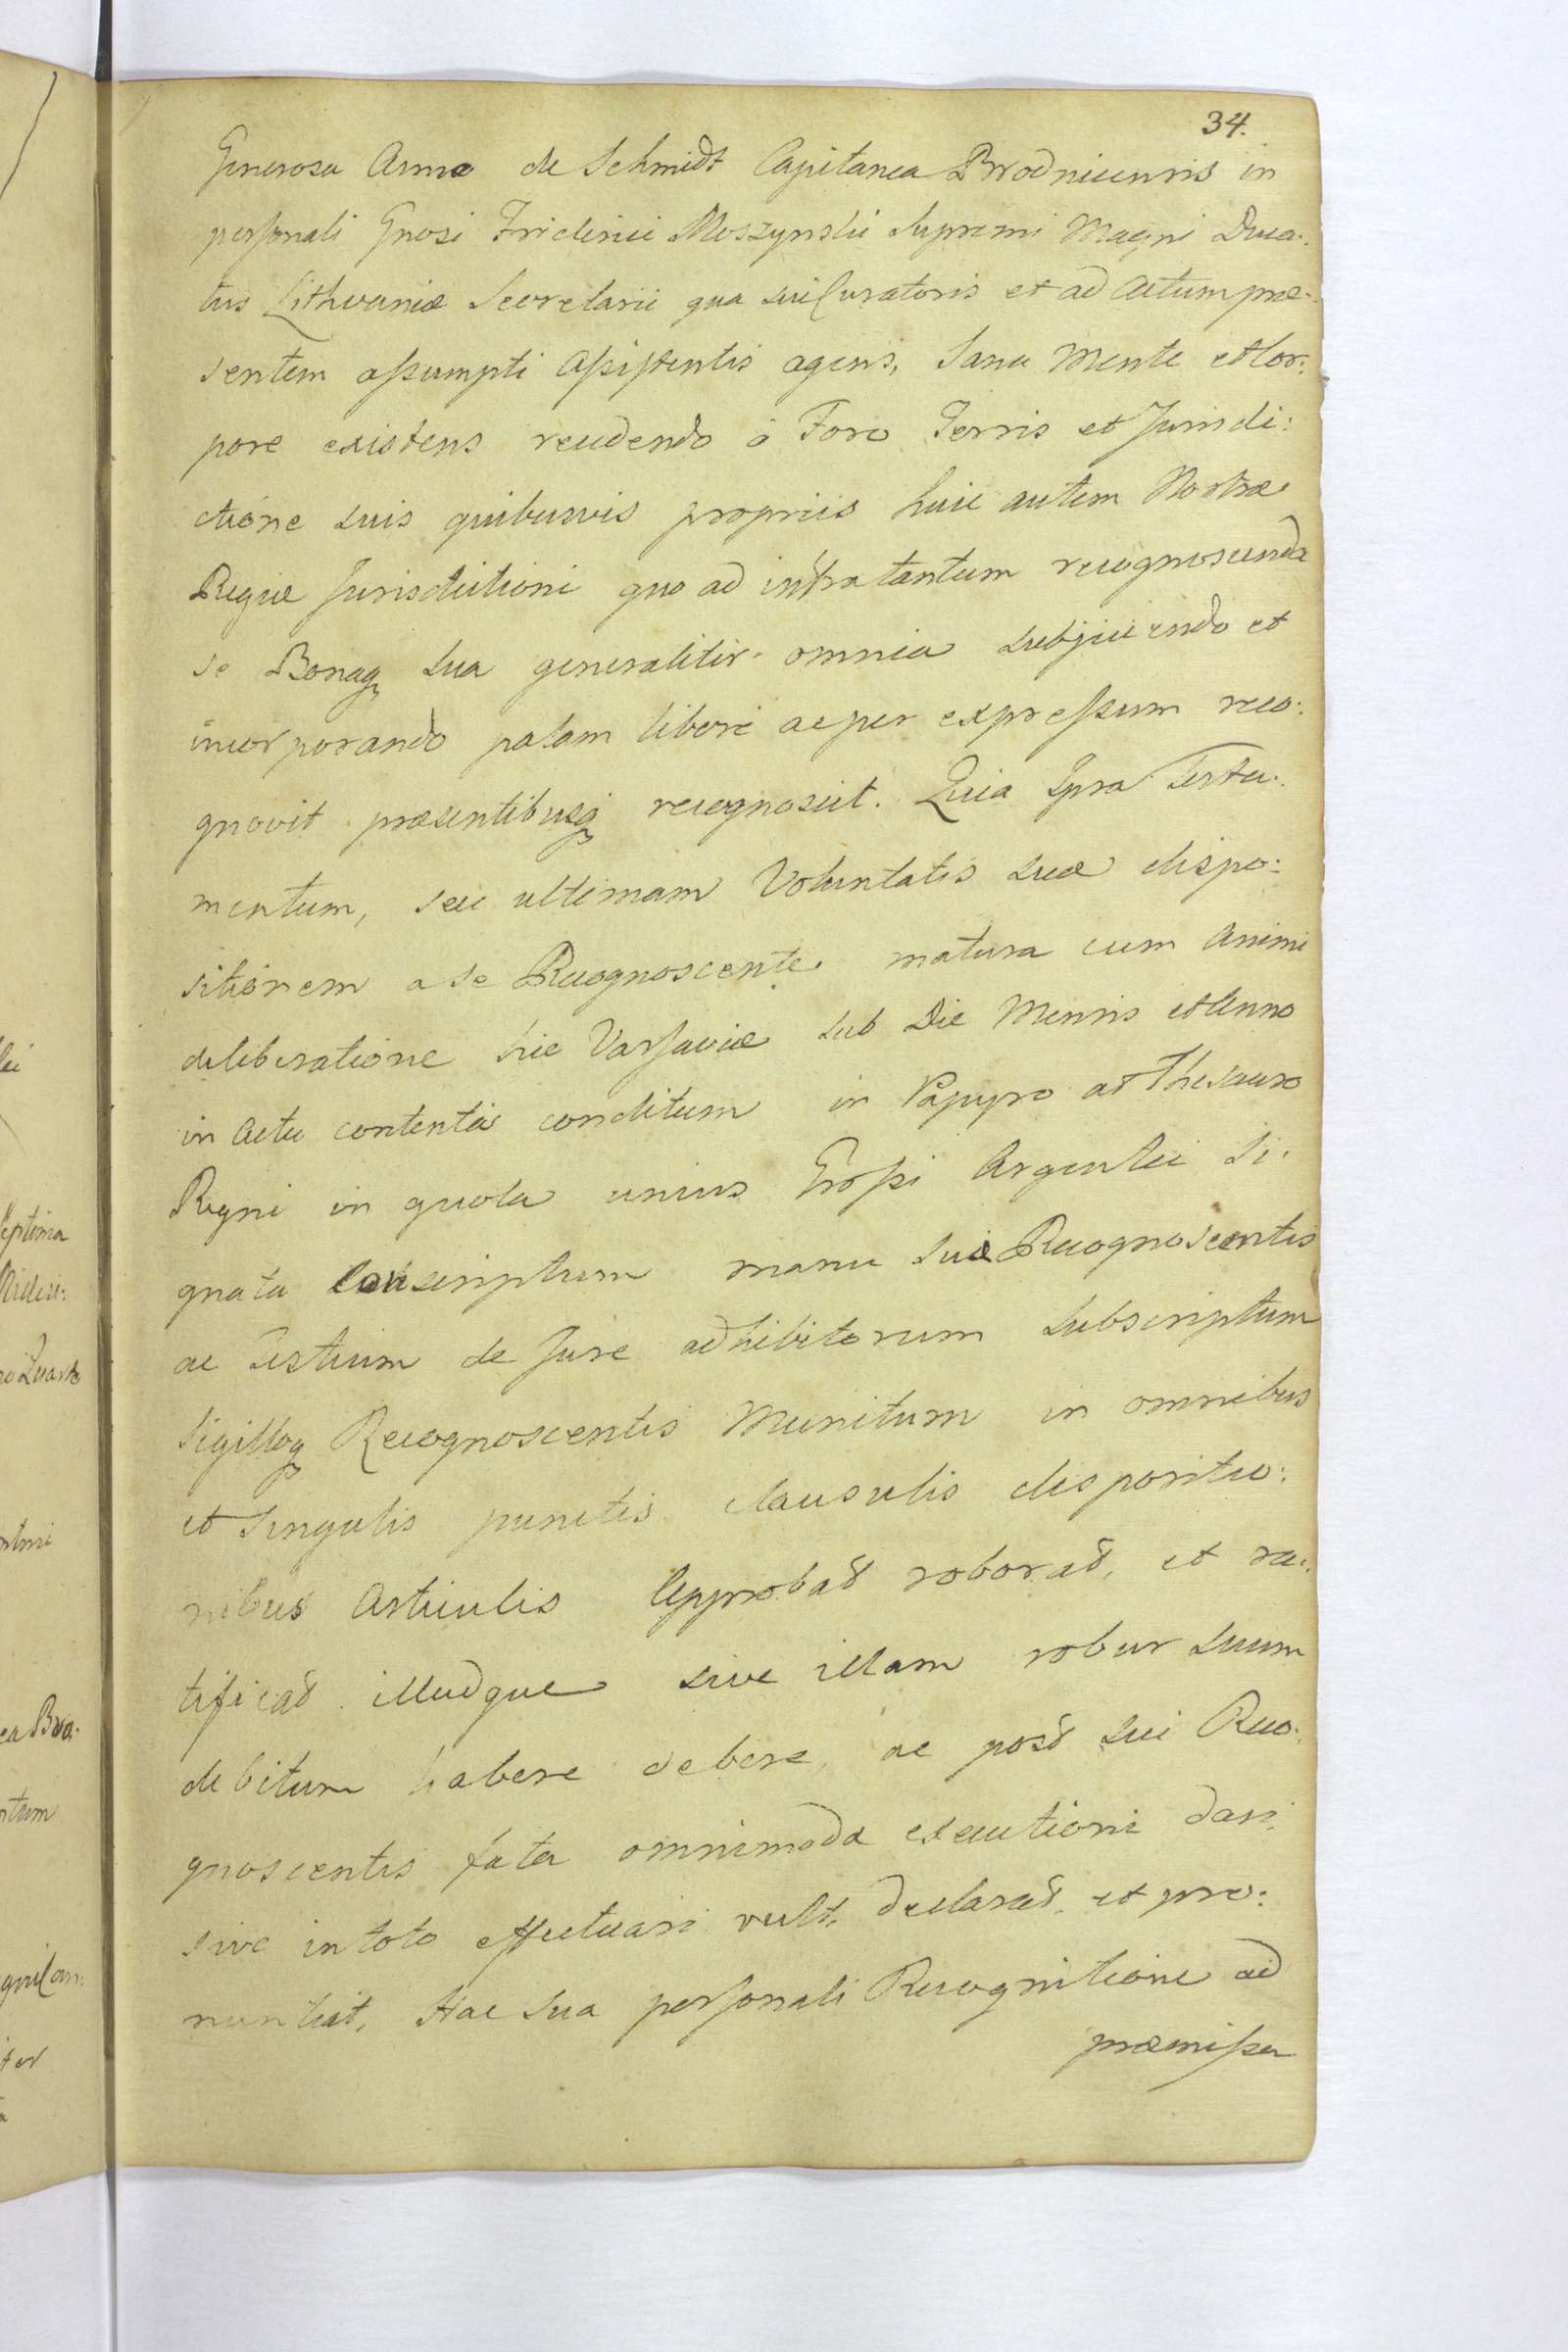 34.
Generosa Anna de Schmidt Capitanea Brodnicensis in
personali Gnosi Friderici Moszynski Supremi Magni Duca:
tus Lithvaniæ Secretarii qua sui Curatoris et ad Actum præ:
sentem assumpti Assistentis agens, Sana Mente et Cor:
pore existens recedendo à Foro Terris et Jurisdi:
ctione suis quibusvis propriis huic autem Nostræ
Regiæ Jurisdictioni quo ad infra tantum recognoscenda
se Bonaq sua generaliter omnia subjiciendo et
incorporando palam libere ac per expressum reco:
gnovit præsentibusq recognoscit. Quia Ipsa Testa:
mentum, seu ultimam Voluntatis suæ dispo:
sitionem a se Recognoscente matura cum Animi
deliberatione hic Varsaviæ sub Die Mensis et Anno
in Actu contentis conditum in Papyro a Thesauro
Regni in quota unius Grossi Argentei Si:
gnata conscriptum manu suæ Recognoscentis
ac Testium de Jure adhibitorum subscriptum
Sigilloq Recognoscentis Munitum in omnibus
et Singulis punctis clausulis dispositio:
nibus Articulis Approbat roborat, et ra:
tificat illudque sive illam robur suum
debitum habere debere, ac post sui Reco:
gnoscentis fata omnimoda executioni dari
sive in toto effectuari vult, declarat, et pro:
nuntiat, Hac sua personali Recognitione ad
præmissa
eptima
ntum